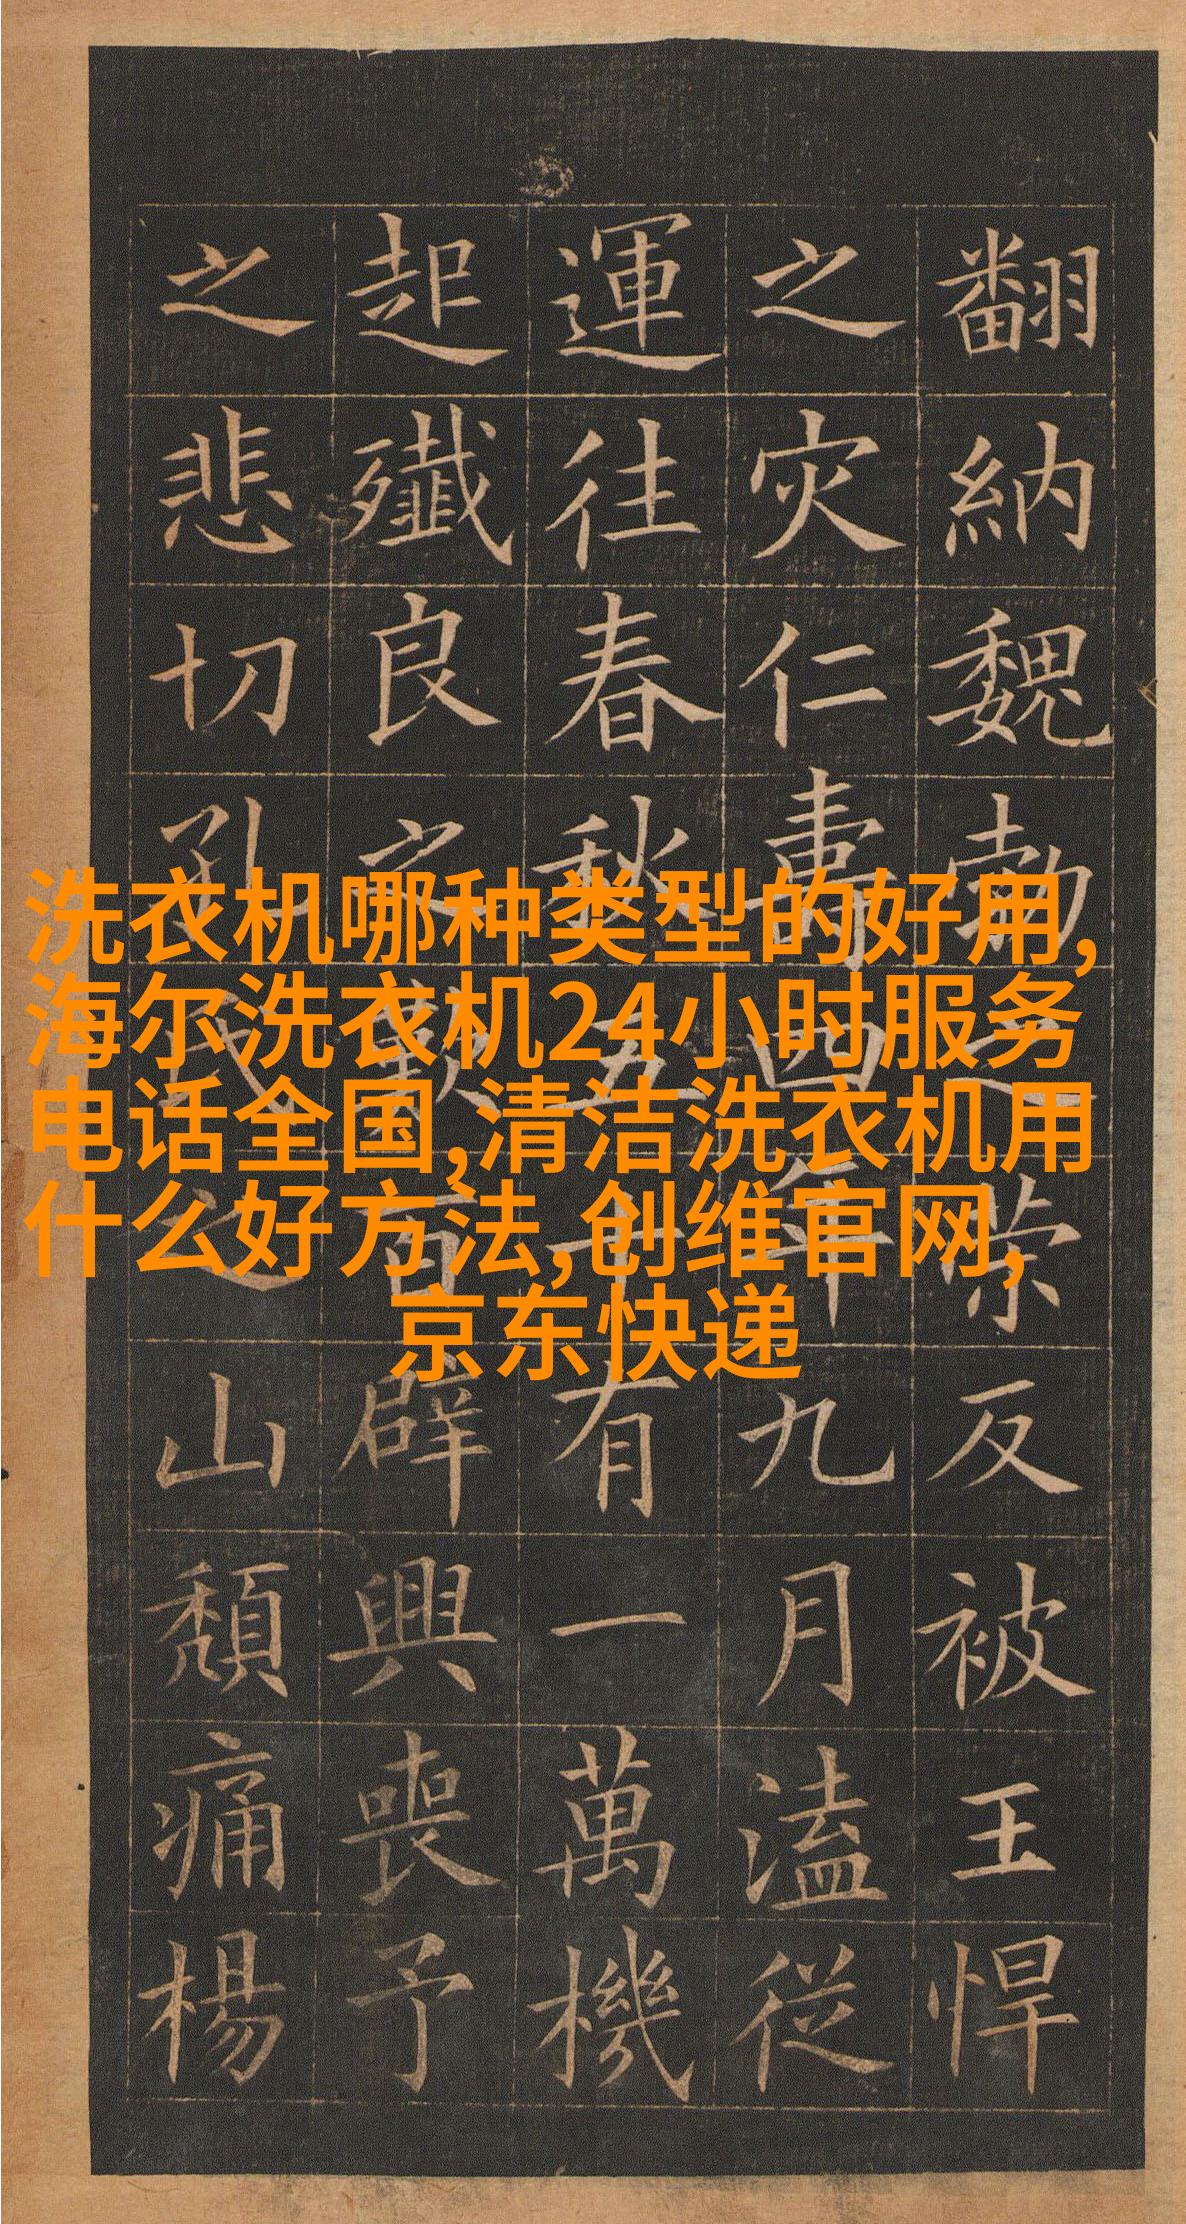 洗衣机哪种类型的好用,
海尔洗衣机24小时服务
电话全国,清洁洗衣机用
什么好方法,创维官网,
京东快递
翻納魏勃反被王悍
之灾仁壽四年九月溘從
運往春秋五十有一萬機
起殲良之歎百辟興喪予
之悲切孔氏之山頹痛楊